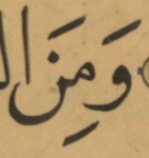 وَمِنَ ا